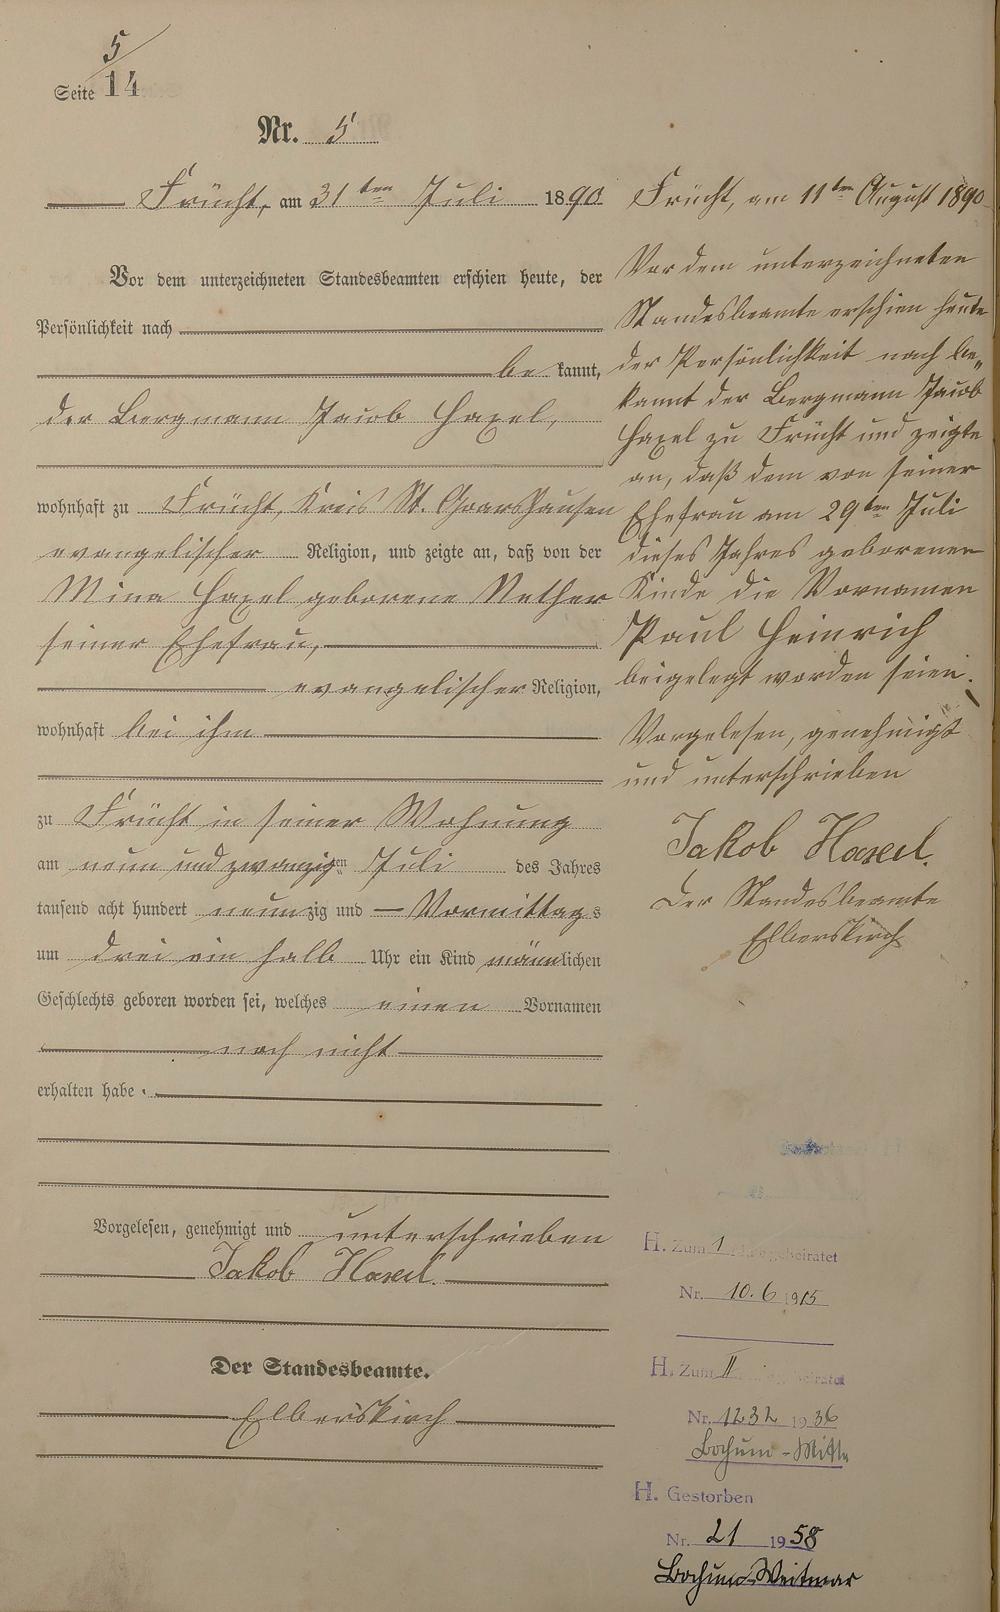 5
Seite 14
Nr. 5
Frücht, am 31ten Juli 1890
Vor dem unterzeichneten Standesbeamten erschien heute, der
Persönlichkeit nach
be kannt,
der Bergmann Jacob Haxel,
wohnhaft zu Frücht, Kreis St. Goarshausen
evangelischer Religion, und zeigte an, daß von der
Mina Haxel geborene Nether
seiner Ehefrau,
evangelischer Religion,
wohnhaft bei ihm
zu Frücht in seiner Wohnung
am neun und zwanzigten Juli des Jahres
tausend acht hundert neunzig und Vormittags
um drei ein halb Uhr ein Kind männlichen
Geschlechts geboren worden sei, welches einen Vornamen
noch nicht
erhalten habe.
Vorgelesen, genehmigt und unterschrieben
Jakob Haxel.
Der Standesbeamte.
Elberskirch
Frücht, am 11ten August 1890
Vor dem unterzeichneten
Standesbeamte erschien heute
der Persönlichkeit nach be„
kannt der Bergmann Jacob
Haxel zu Frücht und zeigte
an, daß dem von seiner
Ehefrau am 29ten Juli
dieses Jahres geborenen
Kinde die Vornamen
Paul Heinrich
beigelegt worden seien.
Vorgelesen, genehmigt
und unterschrieben
Jakob Haxel.
Der Standesbeamte
Elberskirch
H. Zum 1 geheiratet
Nr. 10.6 1915
H. Zum II geheiratet
Nr. 1232 1936
Bochum-Mitte
H. Gestorben
Nr. 21 1958
Bochum-Weitmar